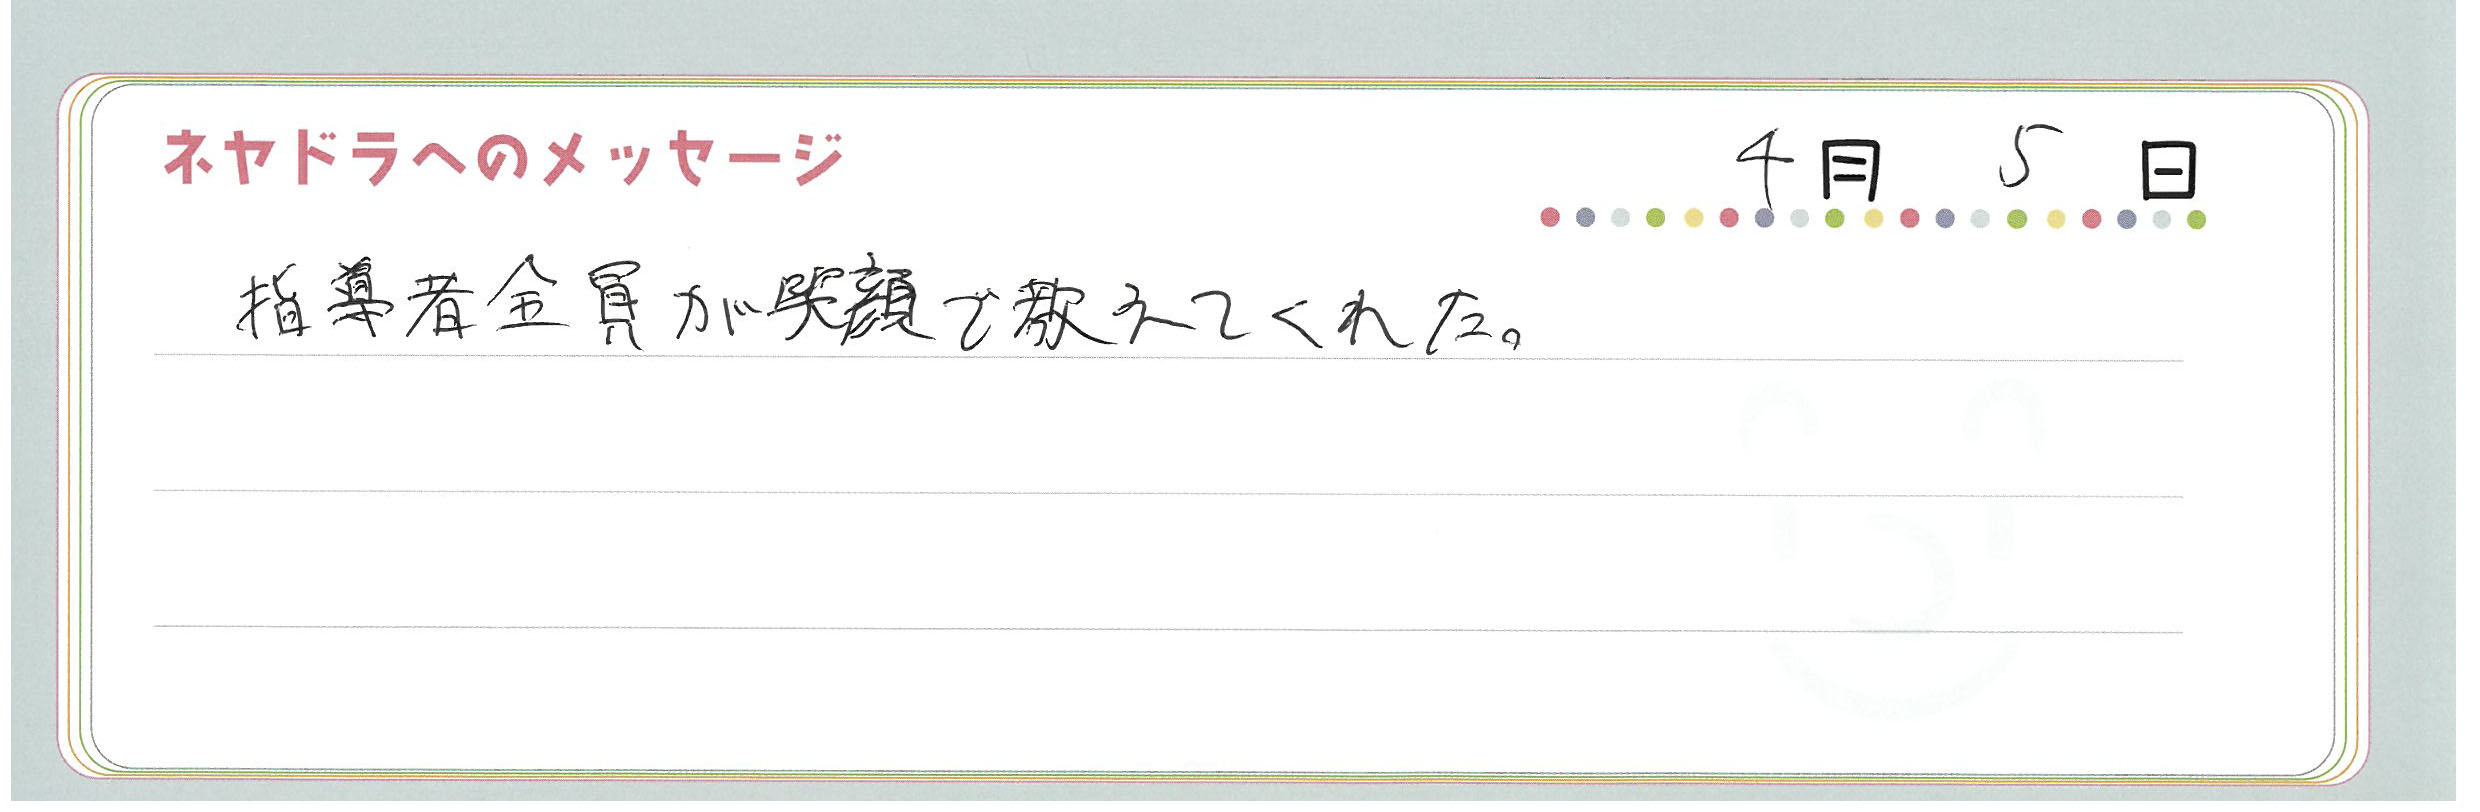 ネヤドラへのメッセージ
4月 5日
指導者全員が笑顔で教えてくれた。